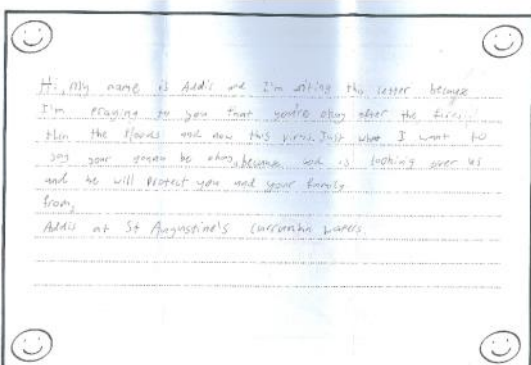 Hi, My name is Addis and I'm writing this letter because
I'm praying to you that you're okay after the fires
then the floods and now this virus. Just what I want to
say your gonna be okay, because God is looking over us
and he will protect you and your family
from,
Addis at St Augustine's Currumbin Waters